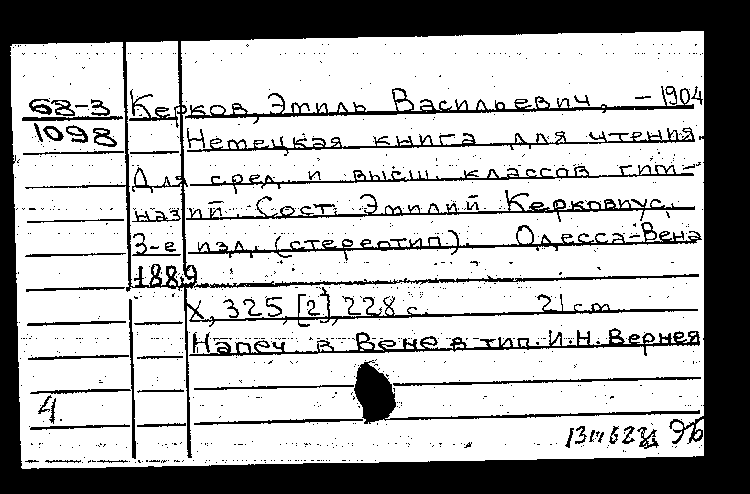 68-3 Керков, Эмиль Васильевич, – 1904
1098 Немецкая книга для чтения.
Для сред. и высш. классов гим-
назий. Сост. Эмилий Керковиус.
3-е изд. (стереотип). Одесса-Вена
1889
X, 325, [2], 228 с. 21 cm
Напеч. в Вене в тип. И.Н. Вернея
4.